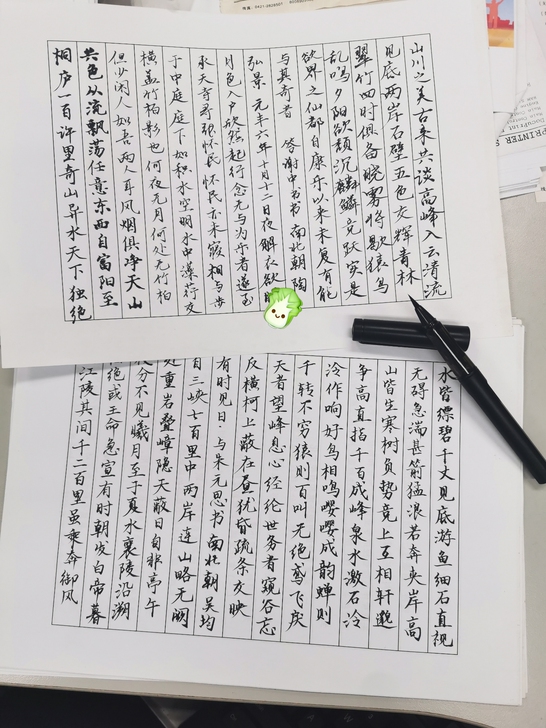 山川之美古来共谈高峰入云清流
见底两岸石壁五色交辉青林
翠竹四时俱备晓雾将歇猿鸟
乱鸣夕阳欲颓沉鳞竞跃实是
欲界之仙都自康乐以来未复有能
与其奇者 答谢中书书 南北朝陶
弘景 元丰六年十月十二日夜解衣欲
月色入户欣然起行念无与为乐者遂至
承天寺寻张怀民怀民亦未寝相与步
于中庭庭下如积水空明水中藻荇交
横盖竹柏影也何夜无月何处无竹柏
但少闲人如吾两人耳风烟俱净天山
共色从流飘荡任意东西自富阳至
桐庐一百许里奇山异水天下独绝
水皆缥碧千丈见底游鱼细石直视
无碍急湍甚箭猛浪若奔夹岸高
山皆生寒树负势竞上互相轩邈
争高直指千百成峰泉水激石泠
泠作响好鸟相鸣嘤嘤成韵蝉则
千转不穷猿则百叫无绝鸢飞戾
天者望峰息心经纶世务者窥谷忘
反横柯上蔽在昼犹昏疏条交映
有时见日·与朱元思书 南北朝吴均
自三峡七百里中两岸连山略无阙
处重岩叠嶂隐天蔽日自非亭午
分不见曦月至于夏水襄陵沿溯
绝或王命急宣有时朝发白帝暮
江陵其间千二百里虽乘奔御风
PRINTER